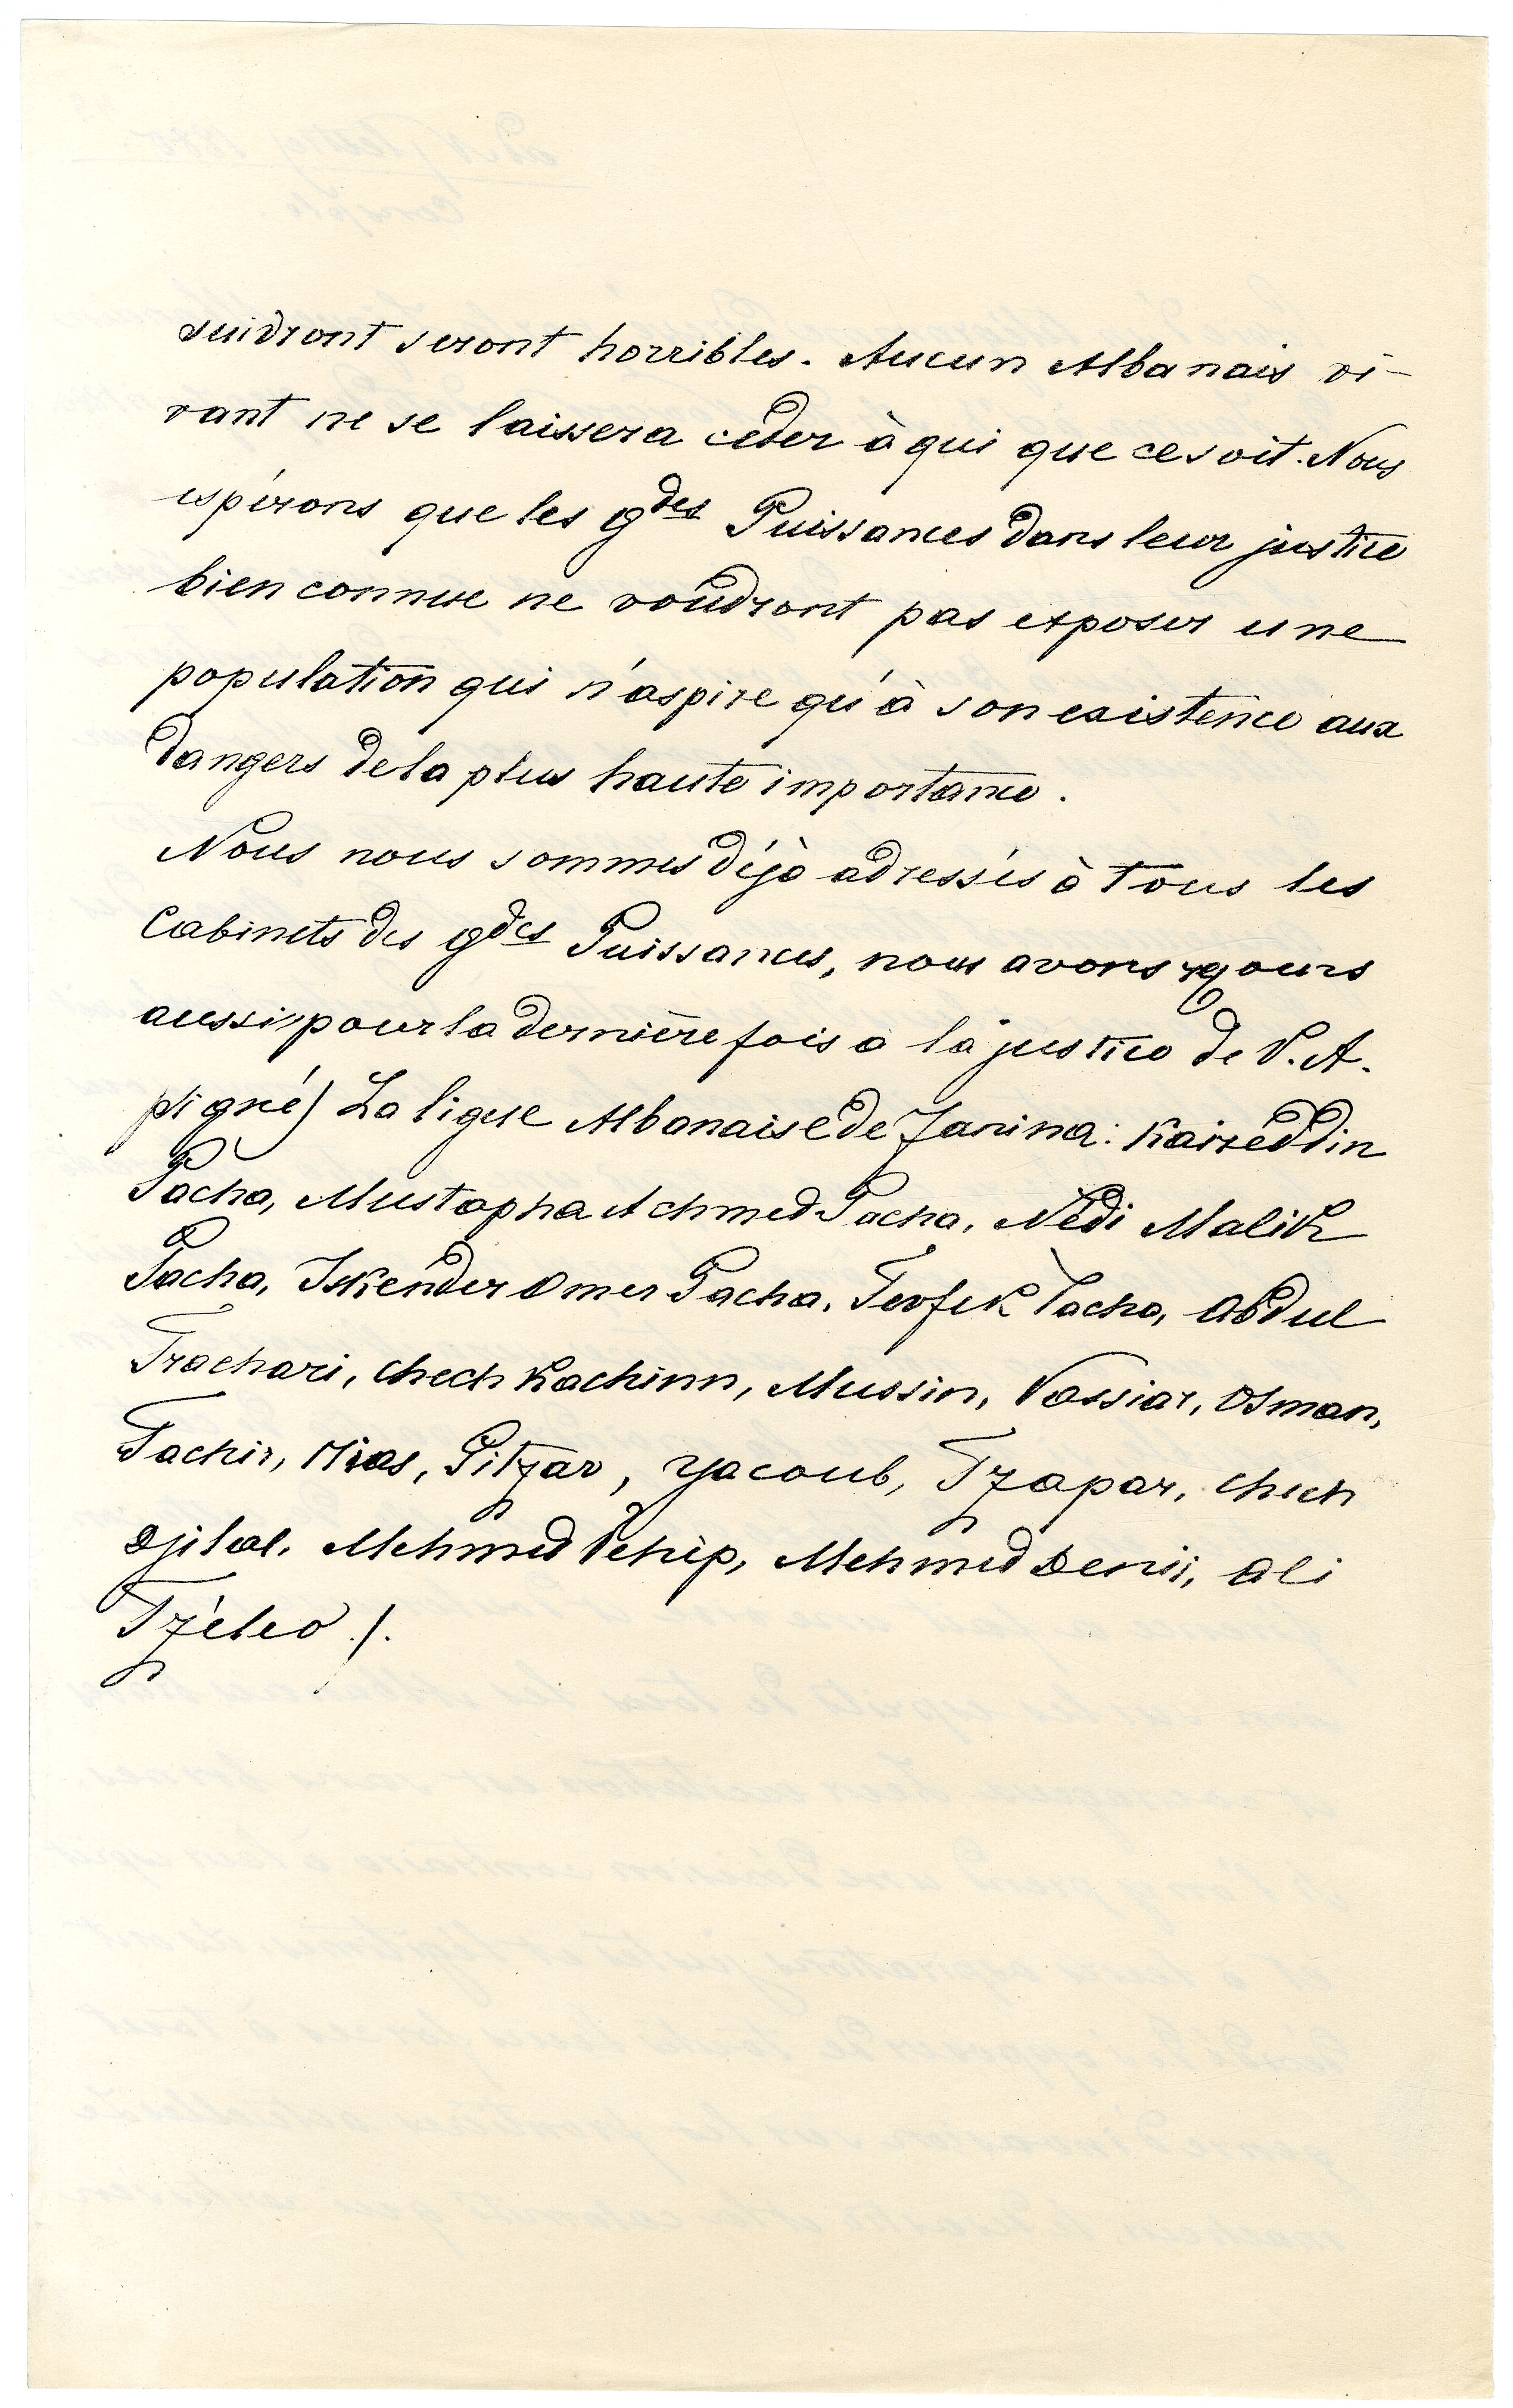 suivront seront horribles. Aucun Albanais vi-
vant ne se laissera céder à qui que ce soit. Nous
espérons que les gdes Puissances dans leur justice
bien connue ne voudront pas exposer une
population qui n'aspire qu'à son existence aux
dangers de la plus haute importance.
Nous nous sommes déjà adressés à tous les
Cabinets des gdes Puissances, nous avons
aussi pour la dernière fois à la justice de V. A.
signé) La ligue Albanaise de Janina: Kairéddin
Pacha, Mustapha Achmed Pacha, Nédi Malik
Pacha, Iskender Omer Pacha, Tevfek Pacha, Abdul
Trachari, Chech Kachinn, Mussin, Vassiar, Osman,
Tachir, Pitzar, Yacoub, Tzapar, Chech
Djilal, Mehmed Vehip, Mehmed Ali
Tzéleo /.